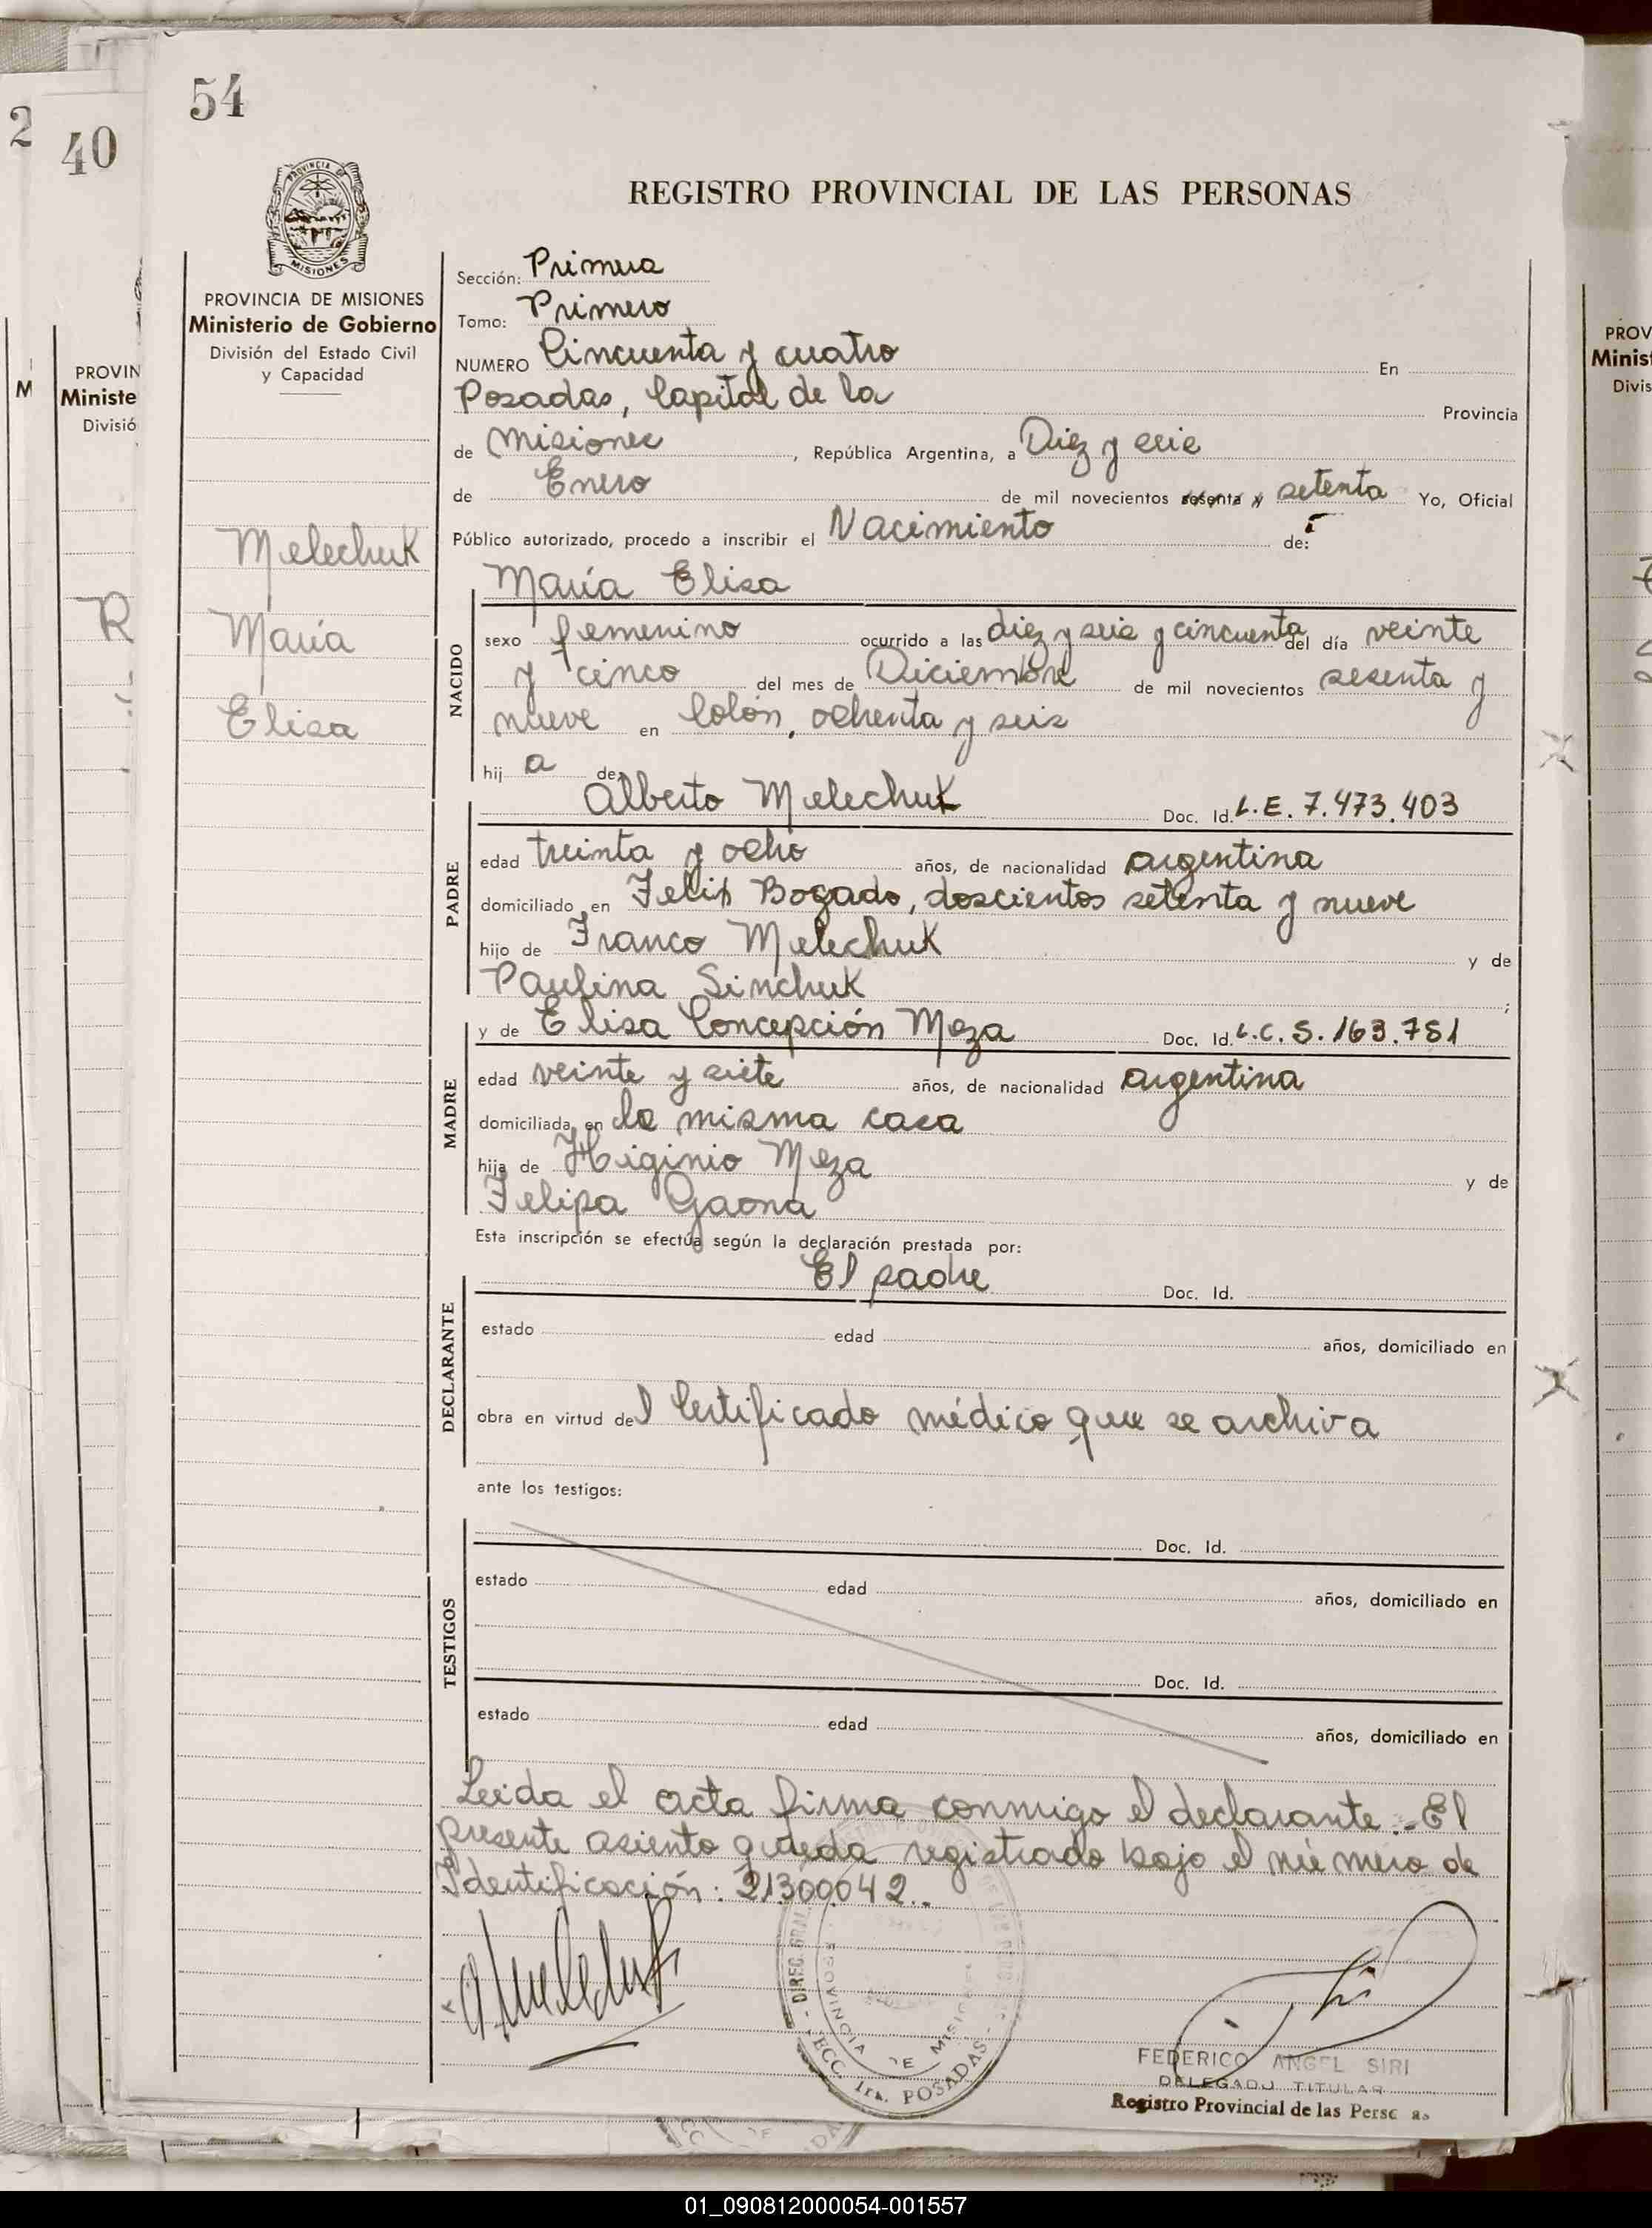 54
2
40
PROVINCIA DE
MISIONES
REGISTRO PROVINCIAL DE LAS PERSONAS
PROVINCIA DE MISIONES
Ministerio de Gobierno
División del Estado Civil
y Capacidad
Melechuk
María
Elisa
Sección: Primera
Tomo: Primero
NUMERO Cincuenta y cuatro En
Posadas, Capital de la Provincia
de Misiones, República Argentina, a Diez y seis
de Enero de mil novecientos sesenta y setenta Yo, Oficial
Público autorizado, procedo a inscribir el Nacimiento de:
María Elisa
NACIDO
sexo femenino ocurrido a las diez y seis y cincuenta del día veinte
y cinco del mes de Diciembre de mil novecientos sesenta y
nueve en Colón, ochenta y seis
hij a de
Alberto Melechuk Doc. Id. L.E. 7.473.403
PADRE
edad treinta y ocho años, de nacionalidad argentina
domiciliado en Felix Bogado, doscientos setenta y nueve
hijo de Franco Melechuk y de
Paulina Sinchuk ;
y de Elisa Concepción Meza Doc. Id. L.C. 5.163.751
MADRE
edad veinte y siete años, de nacionalidad argentina
domiciliada en la misma casa
hija de Higinio Meza y de
Felipa Gaona
Esta inscripción se efectúa según la declaración prestada por:
El padre Doc. Id.
DECLARANTE
estado edad años, domiciliado en
obra en virtud del Certificado médico que se archiva
ante los testigos:
Doc. Id.
TESTIGOS
estado edad años, domiciliado en
Doc. Id.
estado edad años, domiciliado en
Leida el acta firma conmigo el declarante.- El
presente asiento queda registrado bajo el número de
Identificación: 21300042..
DIREC. GRAL.
PROVINCIA DE MISIONES
SECC. 1ra. POSADAS
FEDERICO ANGEL SIRI
DELEGADO TITULAR
Registro Provincial de las Personas
PROVIN
Ministe
Divisió
R
M
PROV
Minis
Divis
01_090812000054-001557